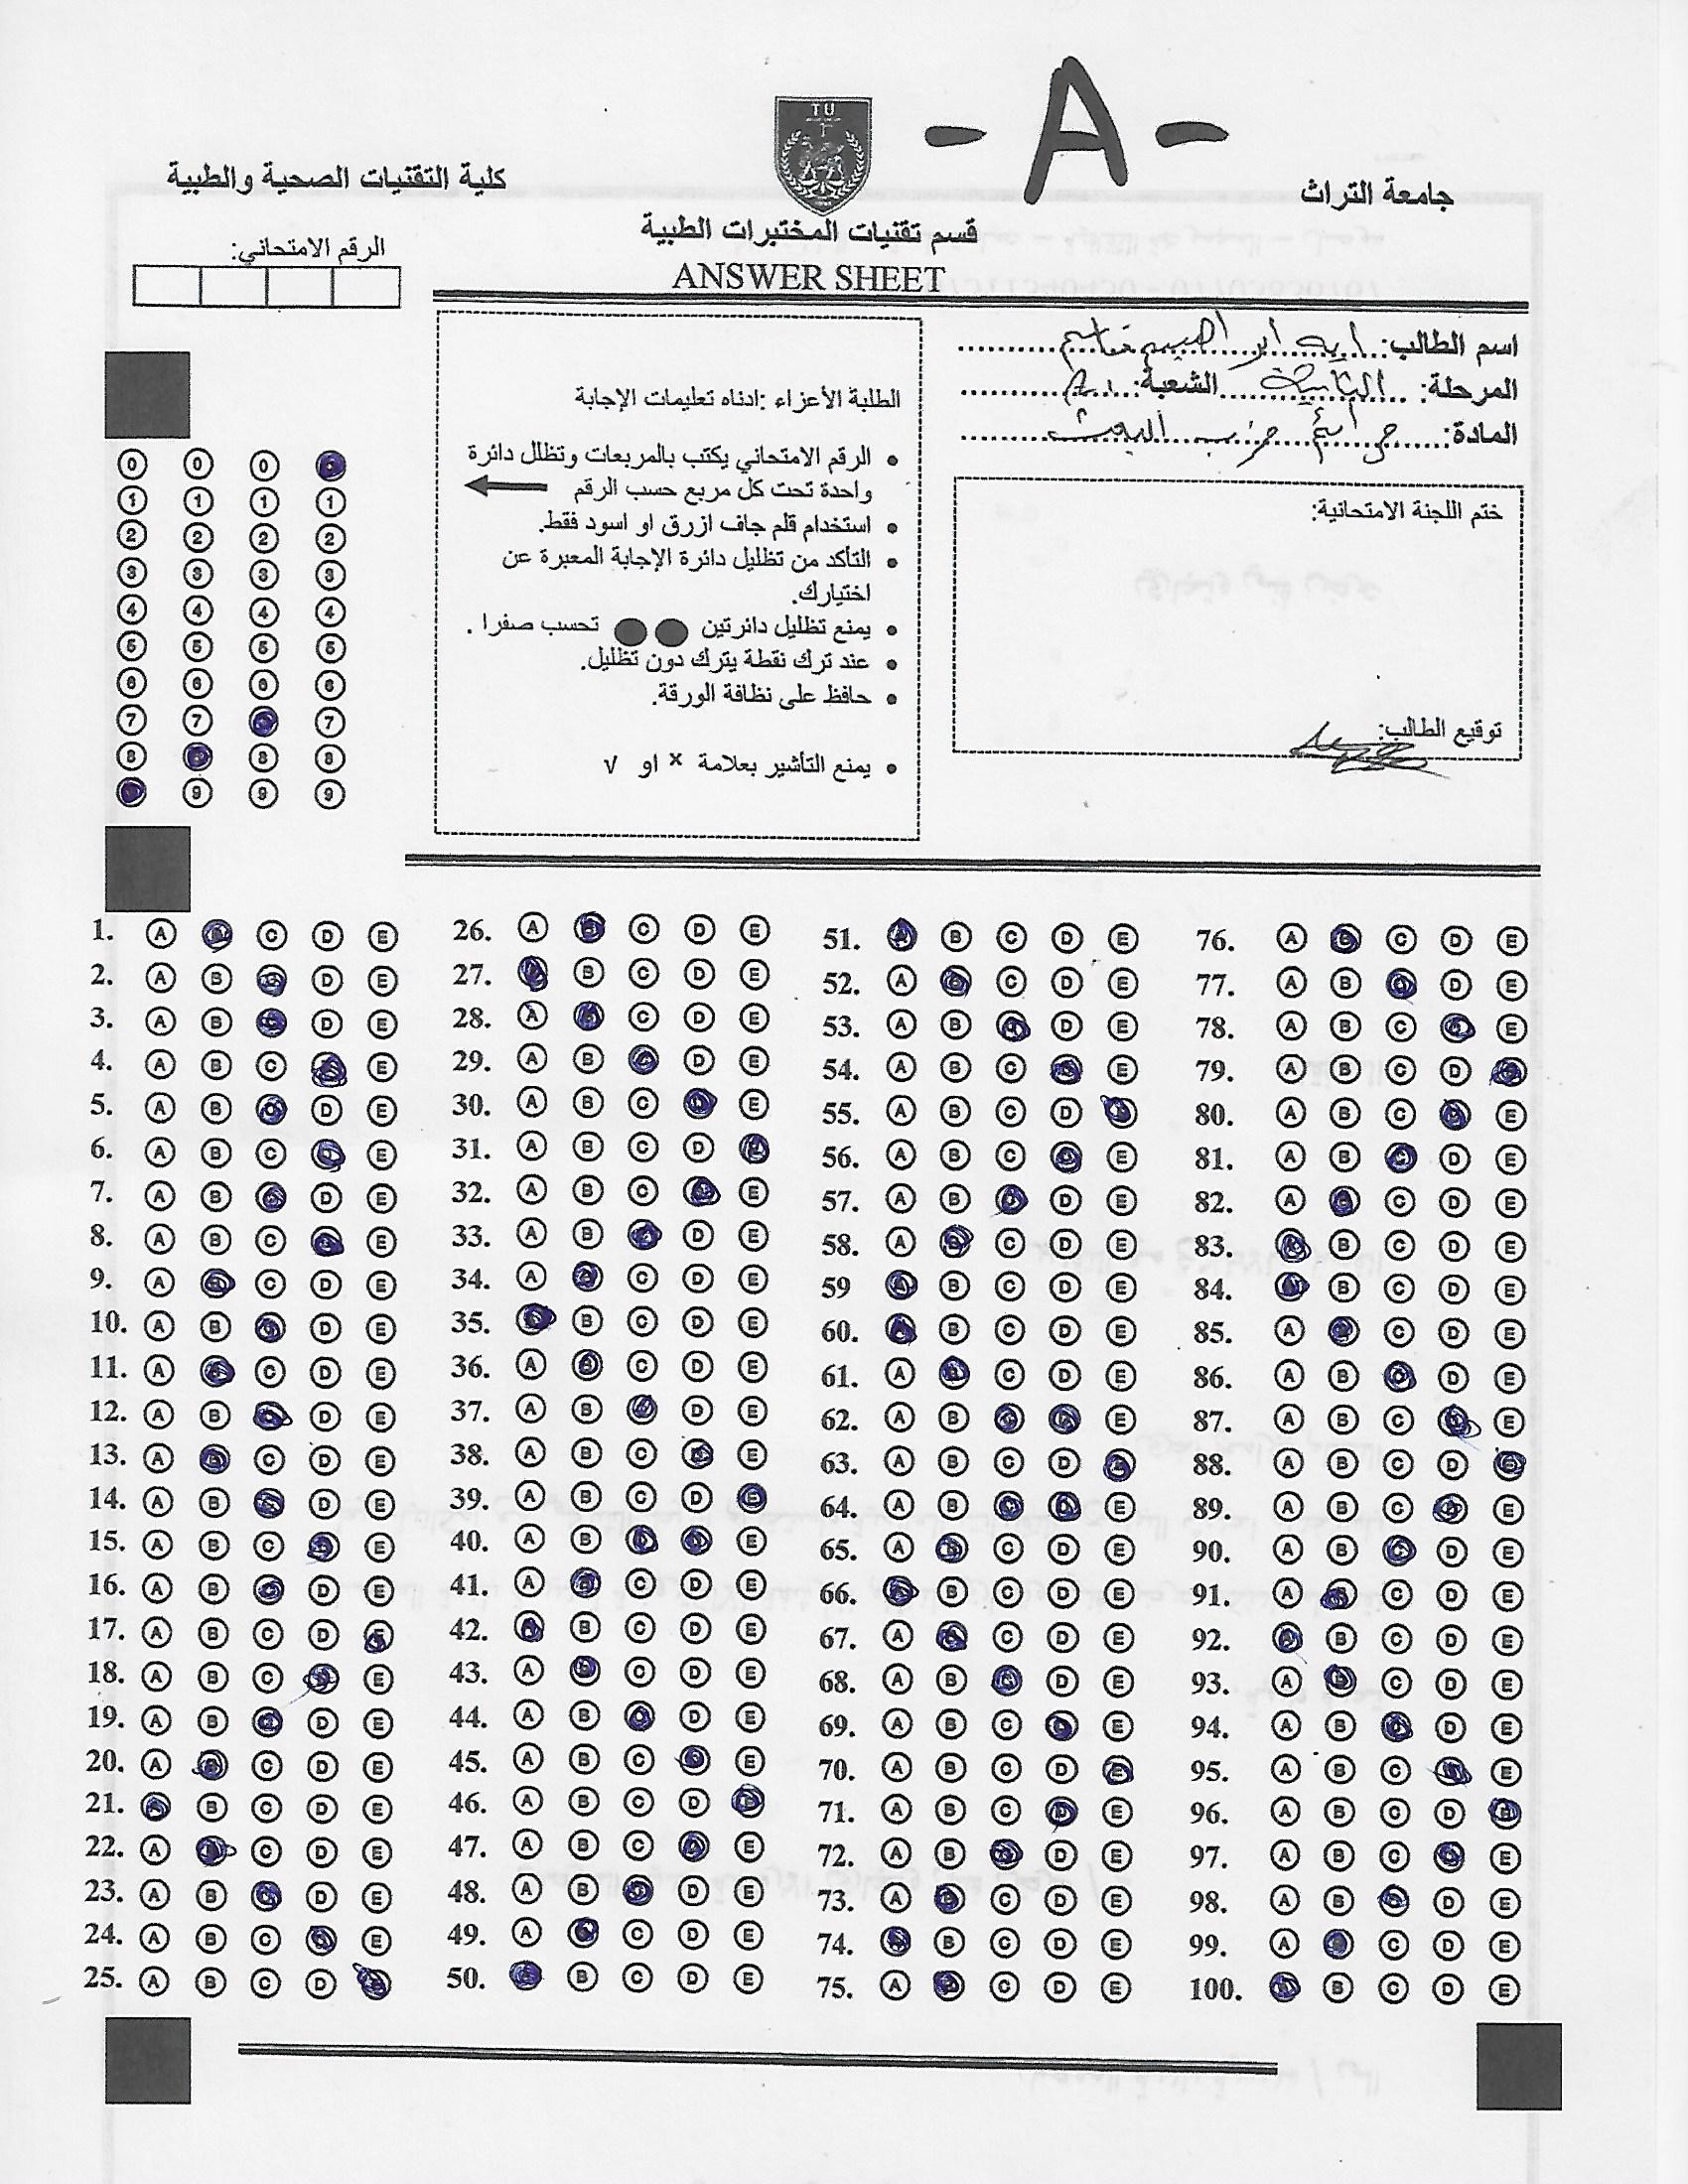 - A -
TU
جامعة التراث
كلية التقنيات الصحية والطبية
قسم تقنيات المختبرات الطبية
ANSWER SHEET
الرقم الامتحاني:
اسم الطالب: ايه ابراهيم قاسم
المرحلة: الثانية الشعبة: A
المادة: جرائم حزب البعث
ختم اللجنة الامتحانية:
توقيع الطالب:
الطلبة الأعزاء :ادناه تعليمات الإجابة
• الرقم الامتحاني يكتب بالمربعات وتظلل دائرة
واحدة تحت كل مربع حسب الرقم
• استخدام قلم جاف ازرق او اسود فقط.
• التأكد من تظليل دائرة الإجابة المعبرة عن
اختيارك.
• يمنع تظليل دائرتين تحسب صفرا .
• عند ترك نقطة يترك دون تظليل.
• حافظ على نظافة الورقة.
• يمنع التأشير بعلامة × او √
0 0 0
1 1 1 1
2 2 2 2
3 3 3 3
4 4 4 4
5 5 5 5
6 6 6 6
7 7 7
8 8 8
9 9 9
1. A B C D E
2. A B C D E
3. A B C D E
4. A B C D E
5. A B C D E
6. A B C D E
7. A B C D E
8. A B C D E
9. A B C D E
10. A B C D E
11. A B C D E
12. A B C D E
13. A B C D E
14. A B C D E
15. A B C D E
16. A B C D E
17. A B C D E
18. A B C D E
19. A B C D E
20. A B C D E
21. A B C D E
22. A B C D E
23. A B C D E
24. A B C D E
25. A B C D E
26. A B C D E
27. A B C D E
28. A B C D E
29. A B C D E
30. A B C D E
31. A B C D E
32. A B C D E
33. A B C D E
34. A B C D E
35. A B C D E
36. A B C D E
37. A B C D E
38. A B C D E
39. A B C D E
40. A B C D E
41. A B C D E
42. A B C D E
43. A B C D E
44. A B C D E
45. A B C D E
46. A B C D E
47. A B C D E
48. A B C D E
49. A B C D E
50. A B C D E
51. A B C D E
52. A B C D E
53. A B C D E
54. A B C D E
55. A B C D E
56. A B C D E
57. A B C D E
58. A B C D E
59 A B C D E
60. A B C D E
61. A B C D E
62. A B C D E
63. A B C D E
64. A B C D E
65. A B C D E
66. A B C D E
67. A B C D E
68. A B C D E
69. A B C D E
70. A B C D E
71. A B C D E
72. A B C D E
73. A B C D E
74. A B C D E
75. A B C D E
76. A B C D E
77. A B C D E
78. A B C D E
79. A B C D E
80. A B C D E
81. A B C D E
82. A B C D E
83. A B C D E
84. A B C D E
85. A B C D E
86. A B C D E
87. A B C D E
88. A B C D E
89. A B C D E
90. A B C D E
91. A B C D E
92. A B C D E
93. A B C D E
94. A B C D E
95. A B C D E
96. A B C D E
97. A B C D E
98. A B C D E
99. A B C D E
100. A B C D E